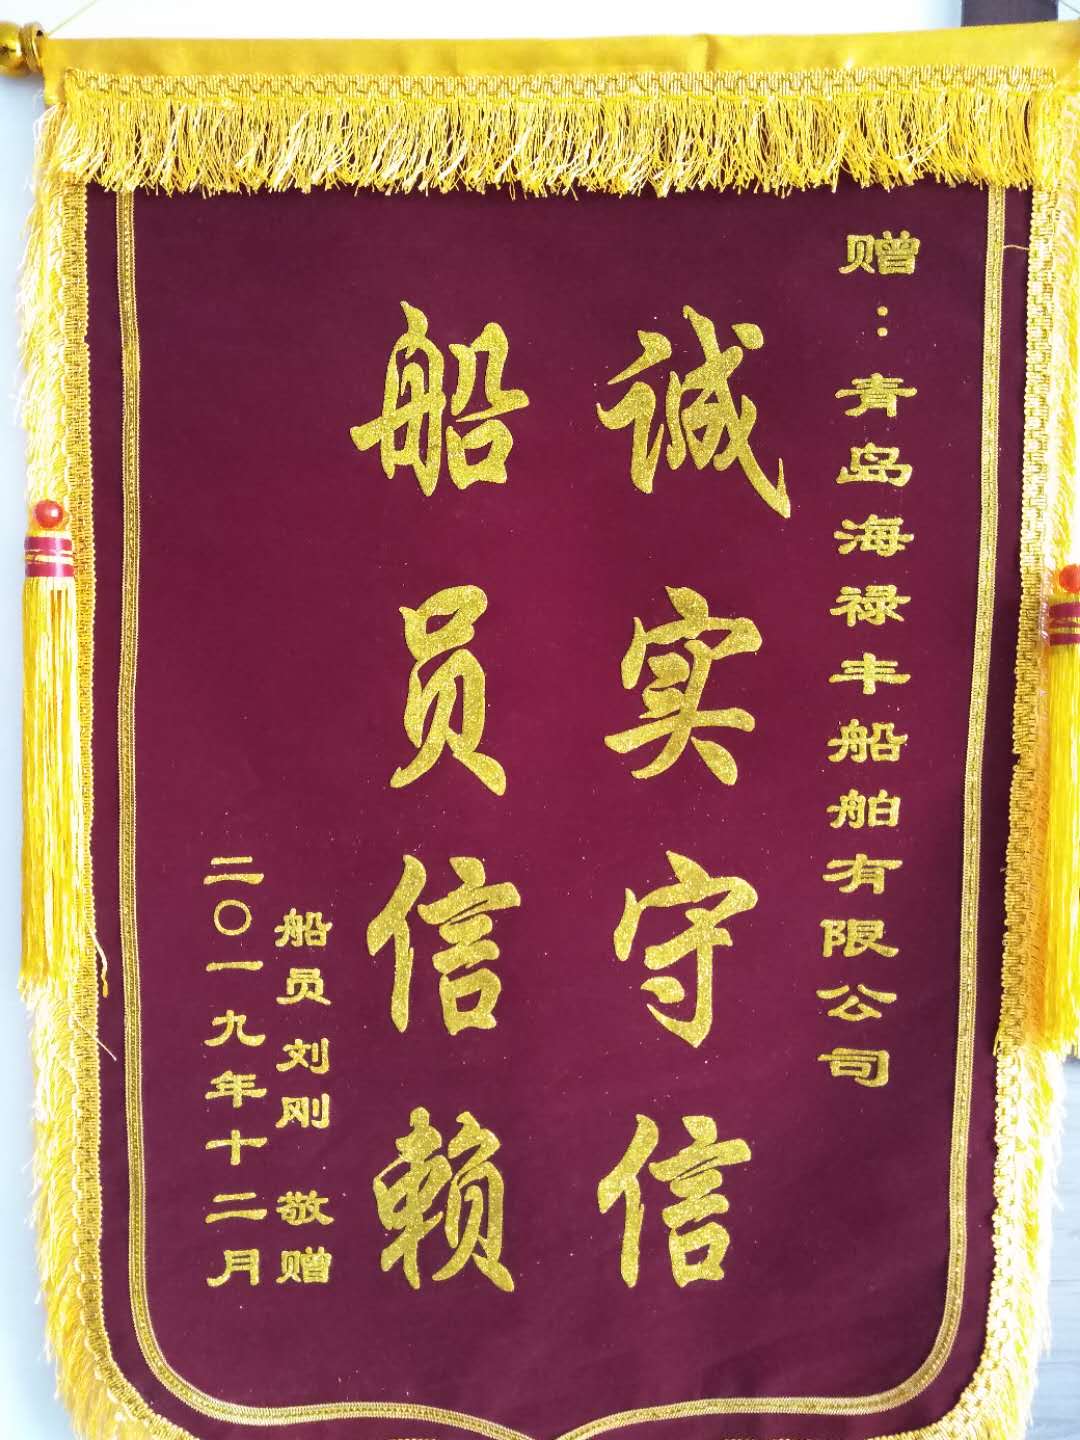 赠：青岛海禄丰船舶有限公司
诚实守信
船员信赖
船员 刘刚 敬赠
二〇一九年十二月